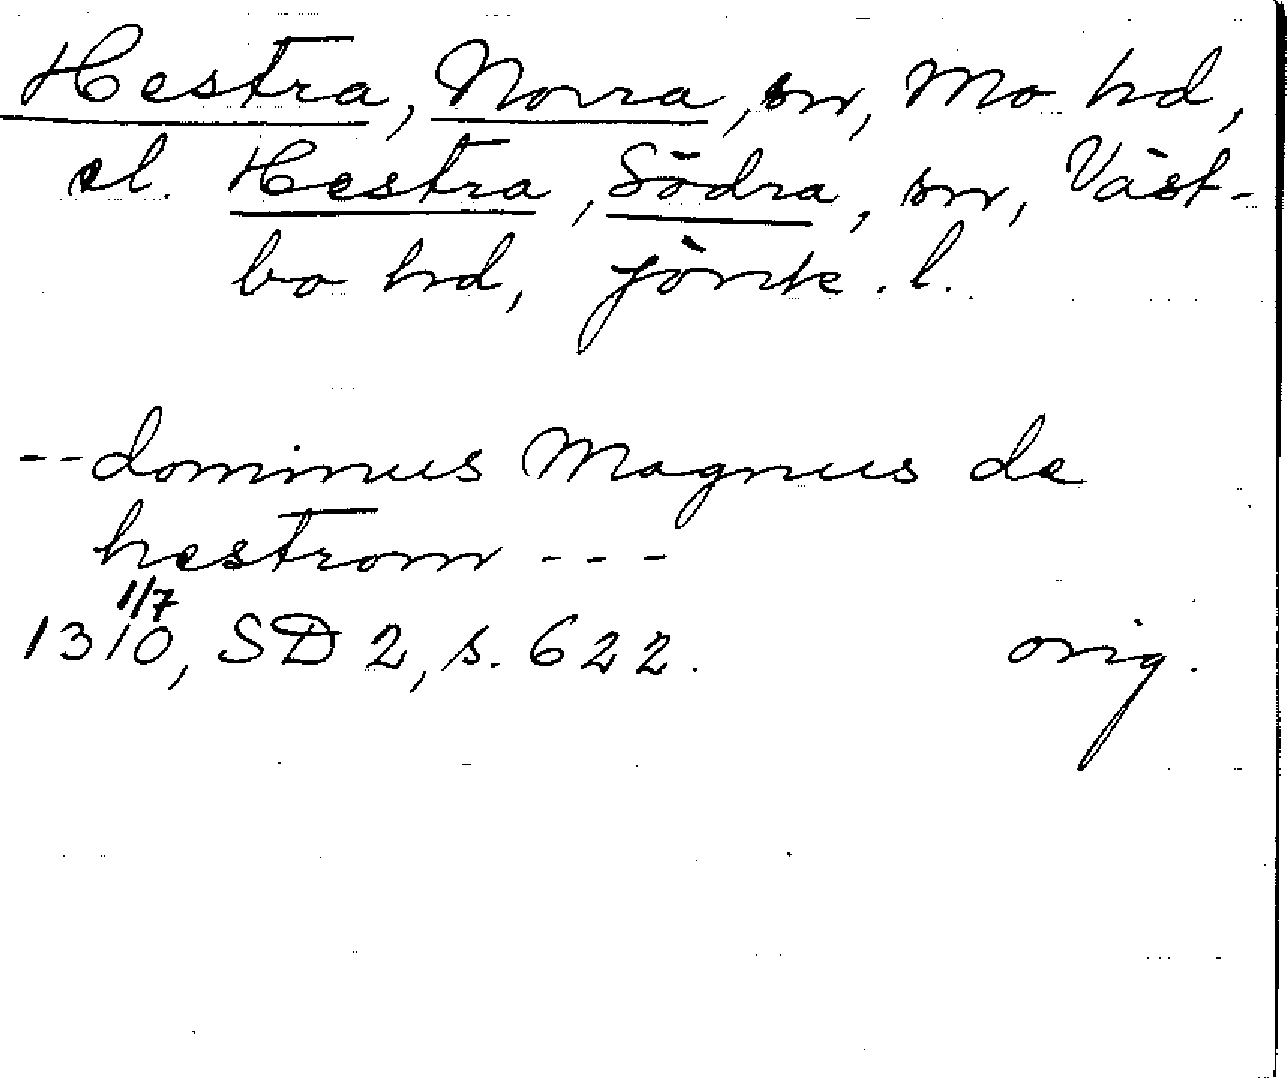 Hestra, Norra, sn, Mo hd,
el. Hestra, Södra, sn, Väst-
bo hd, Jönk. l.
-- dominus Magnus de
hestrom ---
1/7
1310, SD 2, s. 622. orig.